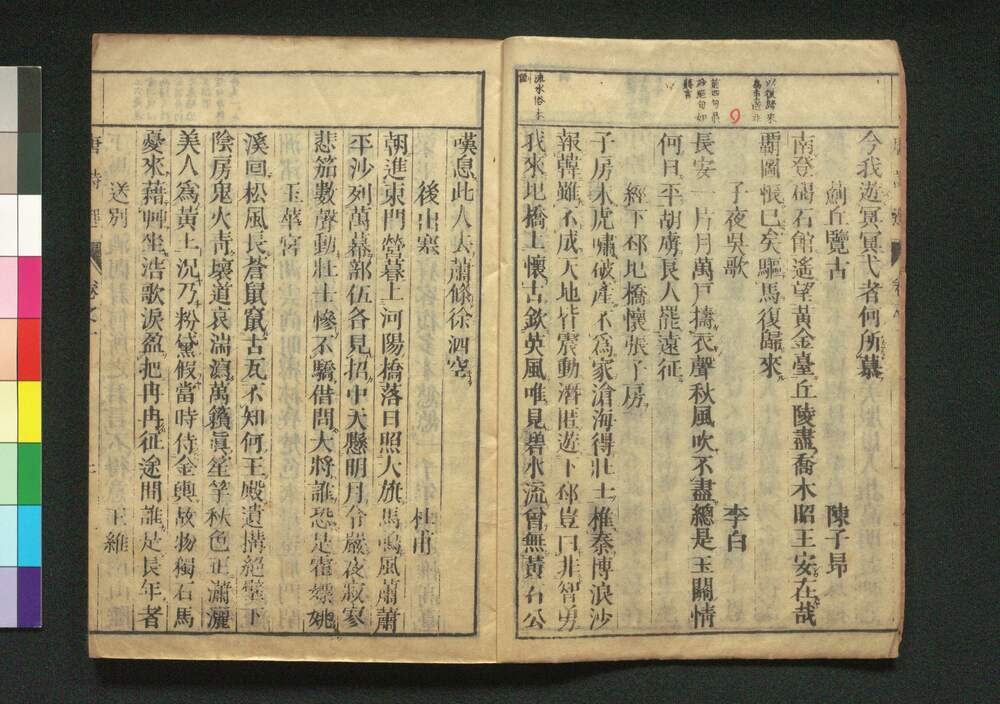 今我遊冥冥弋者何所慕
薊丘覽古 陳子昻
南登碣石館遙望黃金臺丘陵盡喬木昭王安在哉
霸圖悵已矣驅馬復歸來
子夜吳歌 李白
長安一片月萬戸擣衣聲秋風吹不盡總是玉關情
何日平胡虜良人罷遠征
經下邳圯橋懷張子房
子房未虎嘯破產不爲家滄海得壯士椎秦博浪沙
報韓雖不成天地皆震動潛匿遊下邳豈曰非智勇
我來圯橋上懷古欽英風唯見碧水流曾無黃石公
嘆息此人去蕭條徐泗空
後出塞 杜甫
朝進東門營暮上河陽橋落日照大旗馬鳴風蕭蕭
平沙列萬幕部伍各見招中天懸明月令嚴夜寂寥
悲笳數聲動壯士慘不驕借問大將誰恐是霍嫖姚
玉華宮
溪回松風長蒼鼠竄古瓦不知何王殿遺搆絕壁下
陰房鬼火靑壞道哀湍瀉萬籟眞笙竽秋色正瀟灑
美人爲黃土况乃粉黛假當時侍金輿故物獨石馬
憂來藉艸坐浩歌淚盈把冉冉征途間誰是長年者
送別 王維
唐詩選